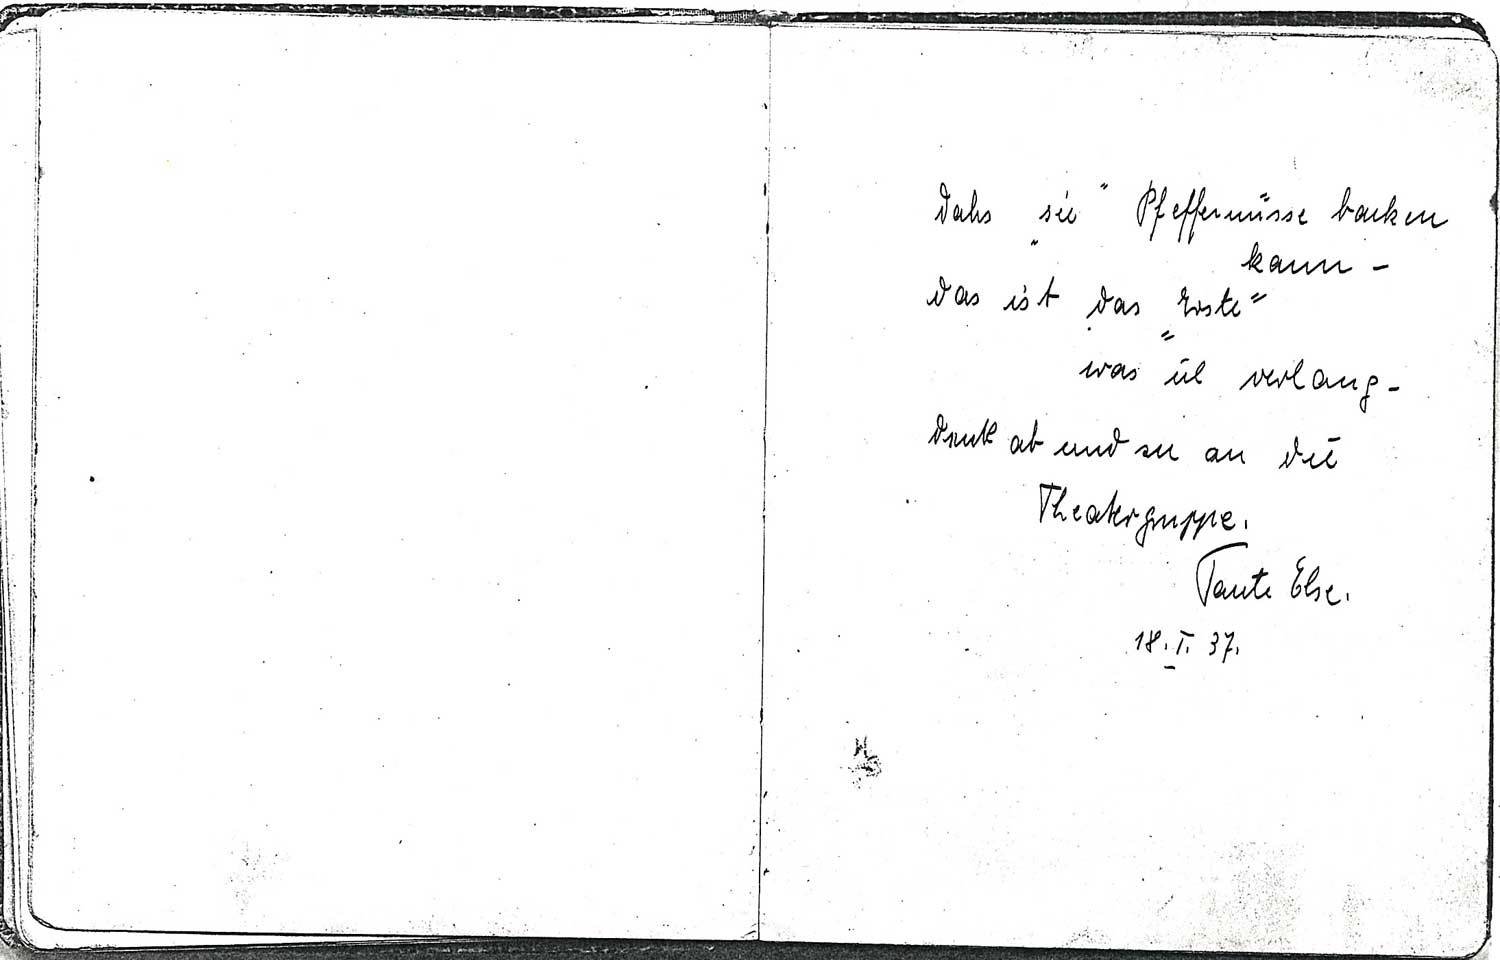 Dahs „sie" Pfeffernüsse backen
kann -
das ist das „Erste"
was ich verlang -
denk ab und zu an die
Theatergruppe.
Tante Else.
18. I. 37.